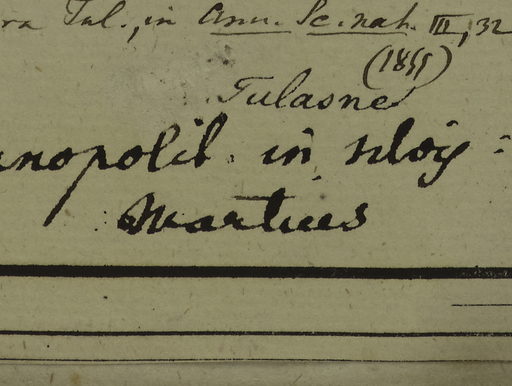 ra Tul., in Ann. Sc. nat. III, 32
(1855)
Tulasne
anopolit. in silviis
Martius